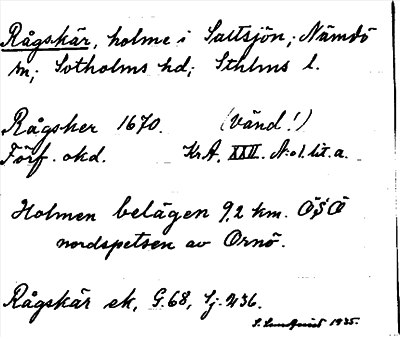 Rågskär, holme i Saltsjön; Nämdö
sn; Sotholms hd; Sthlms l.
Rågsker 1670. (Vänd!)
Förf. okd. KrA, XXII. N:o 1. lit. a.
Holmen belägen 9,2 km. ÖSÖ
nordspetsen av Ornö.
Rågskär ek, G.68, Sj. 236.
S. Lundquist 1935.